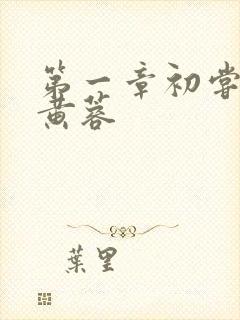 第一章初嘗
黄蓉
葉里